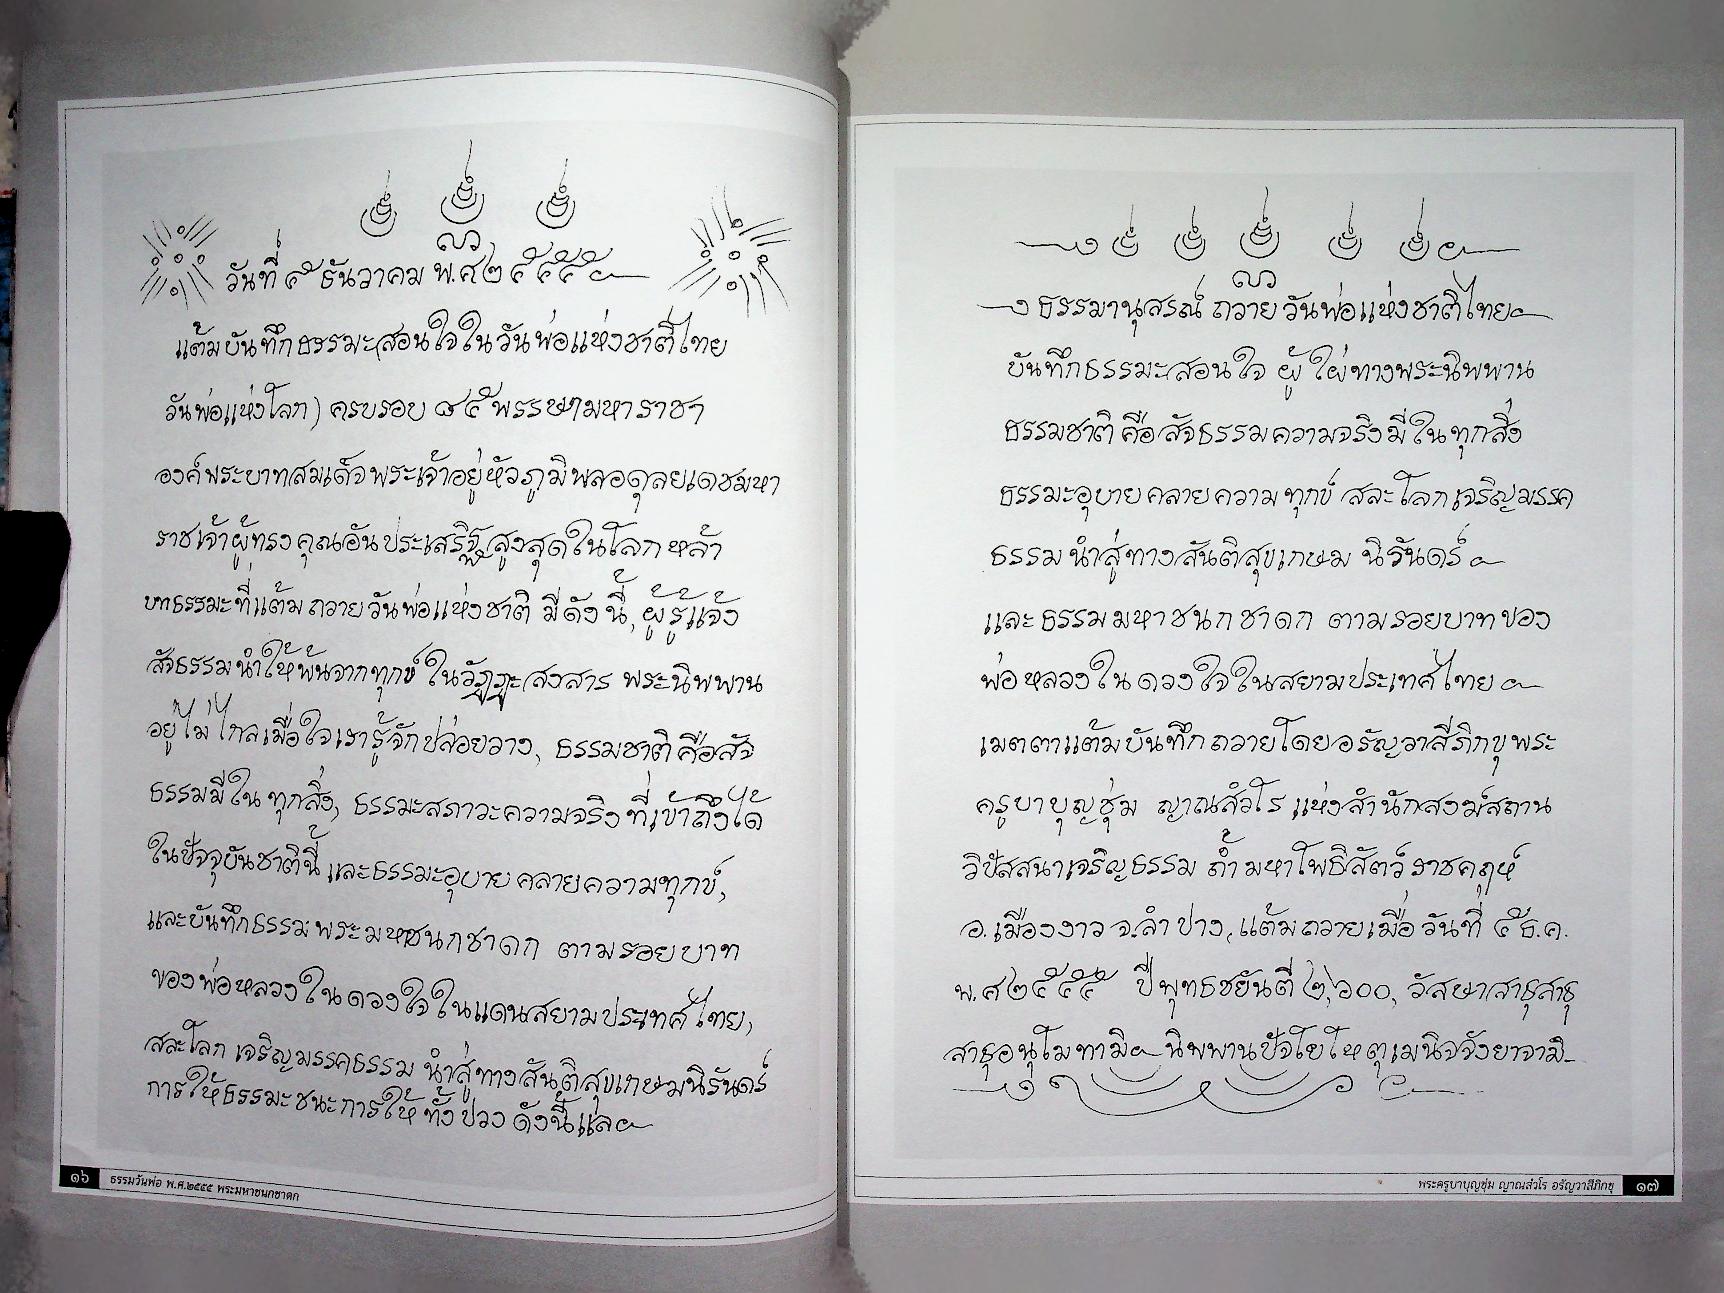 วันที่ ๕ ธันวาคม พ.ศ ๒๕๕๕
แต้มบันทึกธรรมะสอนใจในวันพ่อแห่งชาติไทย
วันพ่อแห่งโลก) ครบรอบ ๘๕ พรรษามหาราชา
องค์พระบาทสมเด็จพระเจ้าอยู่หัวภูมิพลอดุลยเดชมหา
ราชเจ้าผู้ทรงคุณอันประเสริฐสูงสุดในโลกหล้า
บทธรรมะที่แต้มถวายวันพ่อแห่งชาติ มีดังนี้, ผู้รู้แจ้ง
สัจธรรมนำให้พ้นจากทุกข์ ในวัฏฏะสงสาร พระนิพพาน
อยู่ไม่ไกลเมื่อใจเรารู้จักปล่อยวาง, ธรรมชาติคือสัจ
ธรรมมีในทุกสิ่ง, ธรรมะสภาวะความจริงที่เข้าถึงได้
ในปัจจุบันชาตินี้ และธรรมะอุบายคลายความทุกข์,
และบันทึกธรรมพระมหาชนกชาดก ตามรอยบาท
ของพ่อหลวงในดวงใจในแดนสยามประเทศไทย,
สละโลก เจริญมรรคธรรม นำสู่ทางสันติสุขเกษมนิรันดร์
การให้ธรรมะชนะการให้ทั้งปวง ดังนี้แล
๑๖ ธรรมวันพ่อ พ.ศ.๒๕๕๕ พระมหาชนกชาดก
ธรรมานุสรณ์ ถวาย วันพ่อแห่งชาติไทย
บันทึกธรรมะสอนใจ ผู้ใฝ่ทางพระนิพพาน
ธรรมชาติ คือ สัจธรรมความจริงมีในทุกสิ่ง
ธรรมะอุบายคลายความทุกข์ สละโลกเจริญมรรค
ธรรมนำสู่ทางสันติสุขเกษม นิรันดร์
และธรรมมหาชนกชาดก ตามรอยบาทของ
พ่อหลวงในดวงใจในสยามประเทศไทย
เมตตาแต้มบันทึกถวายโดยอรัญวาสีภิกขุพระ
ครูบาบุญชุ่ม ญาณสํวโร แห่งสำนักสงฆ์สถาน
วิปัสสนาเจริญธรรม ถ้ำมหาโพธิสัตว์ราชคฤห์
อ.เมืองงาว จ.ลำปาง, แต้มถวายเมื่อวันที่ ๕ ธ.ค.
พ.ศ ๒๕๕๕ ปีพุทธชยันตี ๒,๖๐๐, วัสษาสาธุสาธุ
สาธุอนุโมทามิ นิพพานปัจโยโหตุเมนิจจังยาจามิ
พระครูบาบุญชุ่ม ญาณสํวโร อรัญวาสีภิกขุ ๑๗